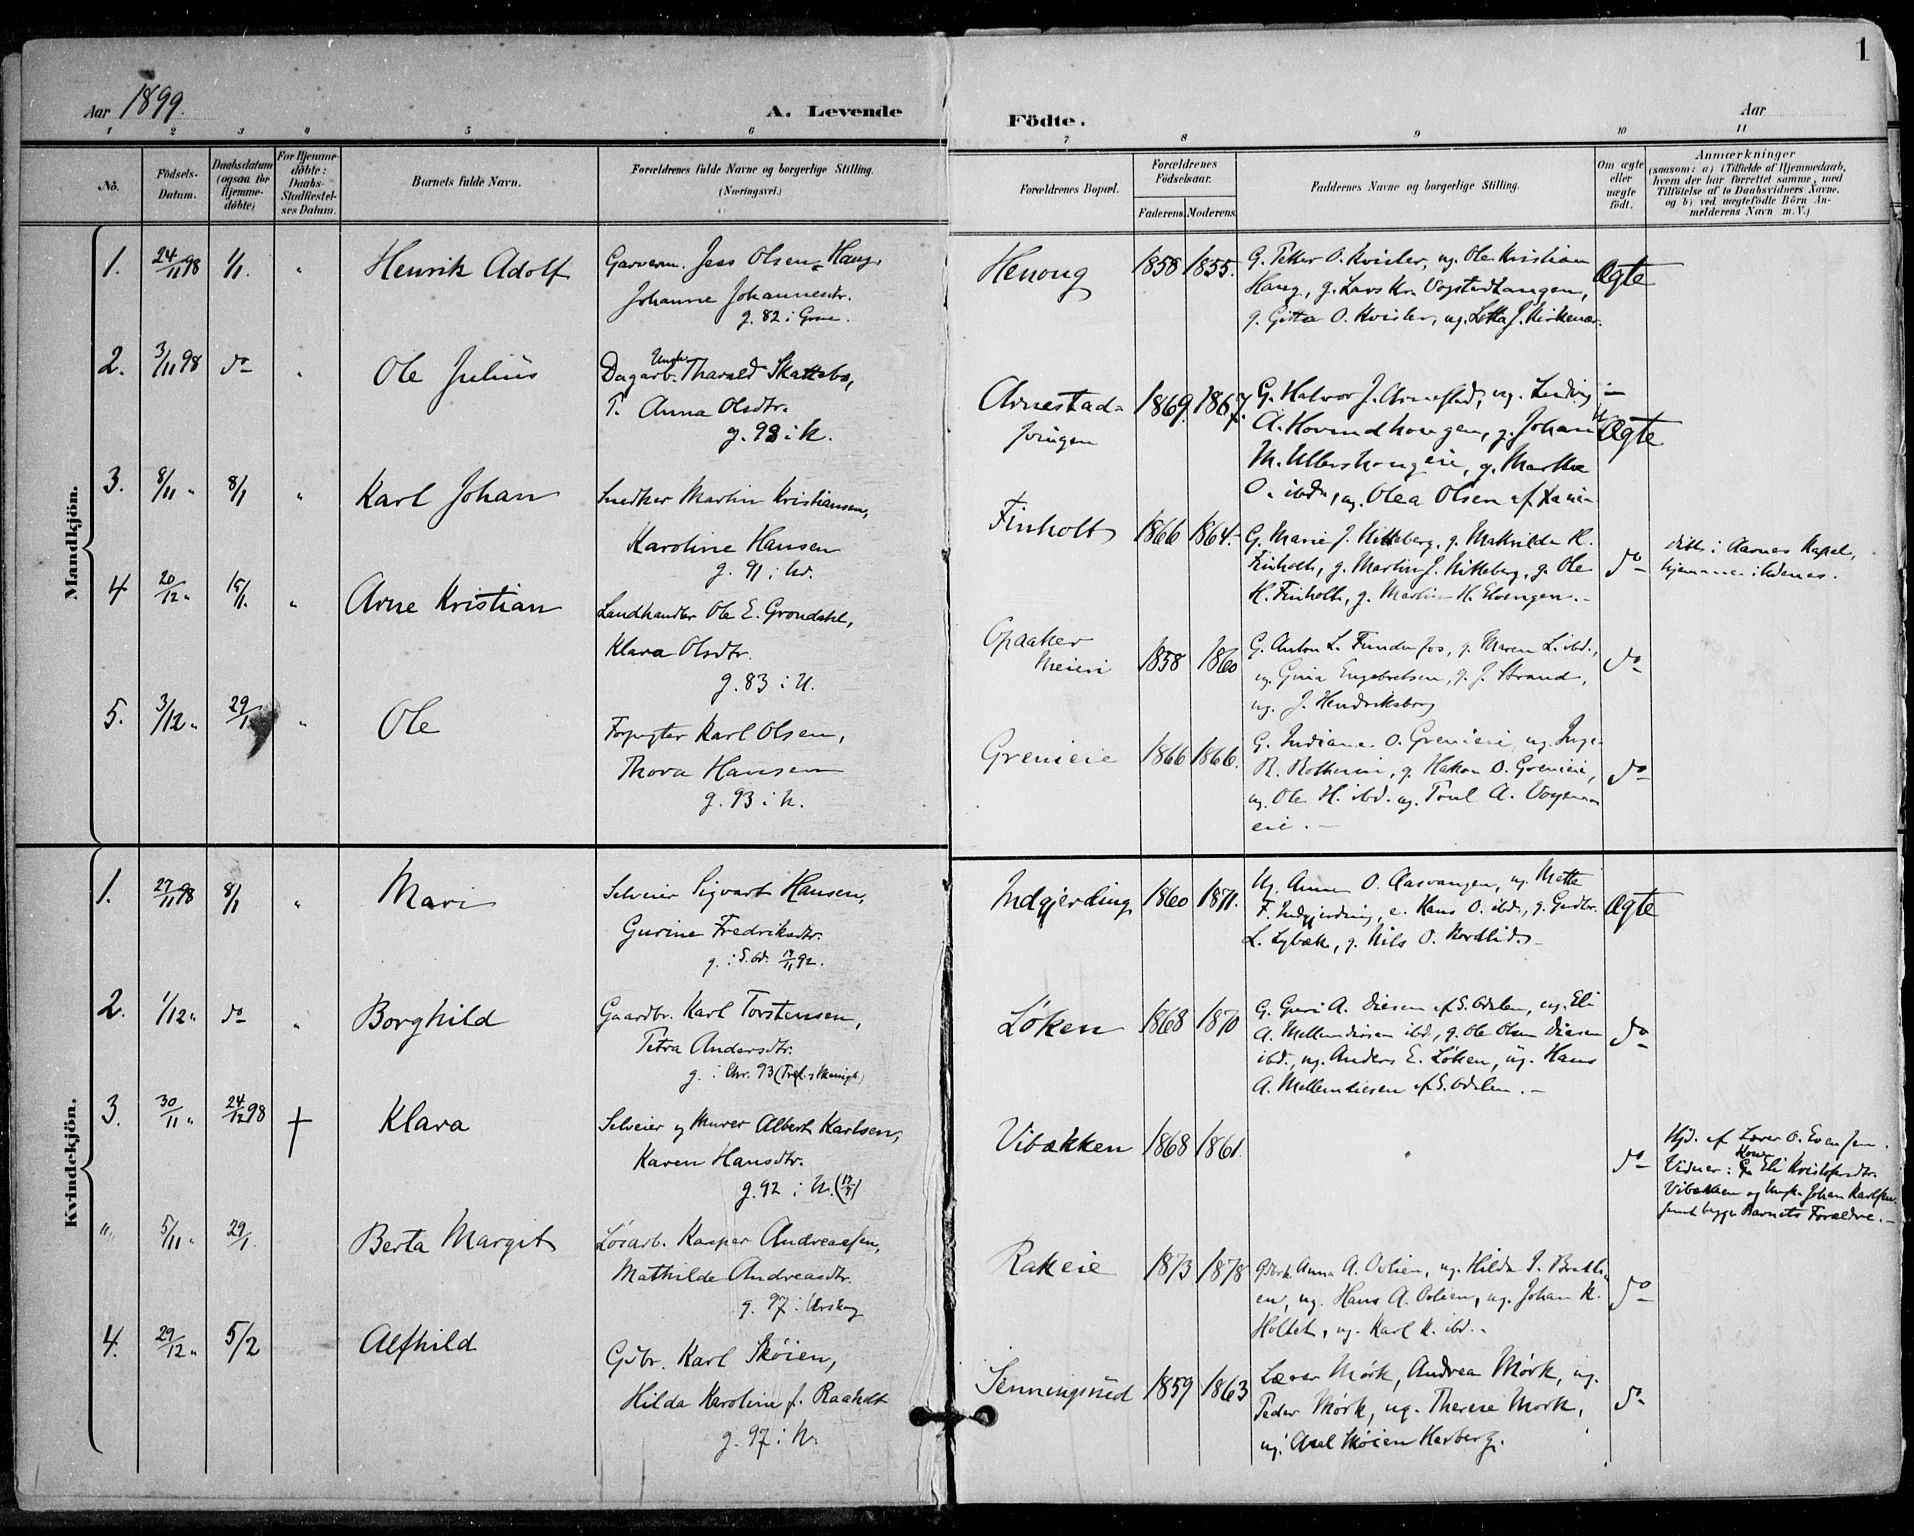 Aar 1899.
A. Levende
Födte.
Aar
1
1 2 3 4 5 6 7 8 9 10 11
No. Födsels-Datum. Daabsdatum (ogsaa for Hjemmedöbte) For Hjemmedöbte: Daabs-Stadfæstelses Datum. Barnets fulde Navn. Forældrenes fulde Navne og borgerlige Stilling. (Næringsvei.) Forældrenes Bopæl. Forældrenes Födselsaar. Faderens. Moderens. Faddernes Navne og borgerlige Stilling. Om ægte eller uægte födt. Anmærkninger (saasom: a) i Tilfælde af Hjemmedaab, hvem der har forrettet samme, med Tilföielse af to Daabsvidners Navne. og b) ved uægtefödte Börn Anmelderens Navn m. V.)
Mandkjön.
1. 24/11 98 1/1. " Henrik Adolf
Garverm. Jens Olsen Haug,
Johanne Johannesdtr.
g. 82 i Grue.
Henoug 1858 1855.
G. Petter O. Kvisler, ug. Ole Kristian
Haug, g. Lars Kr. Vogstadhaugen,
g. Gitta O. Kvisler, ug. Lotta J. Kirkenær.
Ægte
2. 3/11 98 do " Ole Julius
Ungk.
Dagarb. Tharald Skattebo,
P. Anna Olsdtr.
g. 98 i N.
Arnestad-
svingen 1869. 1867.
G. Halvor J. Arnestad, ug. Ludvig
A. Hovindhougen, g. Johan
M. Ullershougeie, g. Marthe
O. ibd., ug. Olea Olsen af
Uægte
3. 8/11 " 8/1 " Karl Johan
Snedker Martin Kristiansen,
Karoline Hansen
g. 91 i Ud.
Finholt 1866 1864.
G. Marie J. Hitteberg, g. Mathilde H.
Finholt, g. Martin J. Hitteberg, g. Ole
H. Finholt, g. Martin H. Elvengen.
do
døbt i Aarnes Kapel,
hjemme i Udenes.
4 20/12 " 15/1. " Arne Kristian
Landhandler Ole E. Grøndahl,
Klara Olsdtr.
g. 83 i N.
Opaaker
Meieri 1858 1860
G. Anton L. Funderfos, g. Maren L. ibd.,
ug. Gina Engebretsen, g. J. Strand,
ug. J. Hendriksborg
do
5. 3/12 " 29/1 " Ole
Forpagter Karl Olsen,
Thora Hansen
g. 93 i N.
Grenieie 1866 1866.
G. Indiane O. Grenieie, ug. Inge
R. Rotherien, g. Hakon O. Grenieie,
ug. Ole H. ibd. ug. Poul A. Vogen-
eie.
do
Kvindekjön.
1. 27/11 98 8/1 " Mari
Selveier Sigvart Hansen,
Gurine Fredriksdtr.
g. i S. Od. 92.
Indgjerding 1860 1871.
Ug. Anne O. Aasvangen, ug. Mette
F. Indgjerding, e. Hans O. ibd., g. Gudbr.
L. Lybæk, g. Nils O. Nordlid.
Ægte
2. 1/12 " do " Borghild
Gaardbr. Karl Torstensen,
Petra Andersdtr.
g. i Chr. 93 (Tref. Menigh.)
Løken 1868 1870
G. Guri A. Diesen af S. Odalen, ug. Eli
A. Mellemdiesen ibd., g. Ole Olsen Diesen
ibd., ug. Anders E. Løken, ug. Hans
A. Mellemdiesen af S. Odalen.
do
3. 30/11 " 24/12 98 † Klara
Selveier og Murer Albert Karlsen,
Karen Hansdtr.
g. 92 i N.
Vibækken 1868 1861.
"
do
Hjd. af Lærer O. Evensen.
Vidner: Kone Eli Kristofersdtr.
Vibækken og Ungk. Johan Karlsen
samt begge Barnets Forældre.
" 5/11 " 29/1. Berta Margit
Løsarb. Kasper Andreassen,
Mathilde Andreasdtr.
g. 97 i Urskog
Rakeie 1873 1878
Anna A. Ovlien, ug. Hilda P. Bratli-
en, ug. Hans A. Ovlien, ug. Johan K.
Holtet, ug. Karl K. ibd.
do
4. 29/12 " 5/2 Alfhild
Gbr. Karl Skøien,
Hilda Karoline f. Raaholt
g. 97 i N.
Henningsrud 1859 1863
Lærer Mørk, Andrea Mørk, ug.
Peder Mørk, ug. Therese Mørk,
ug. Axel Skøien Herberg.
do